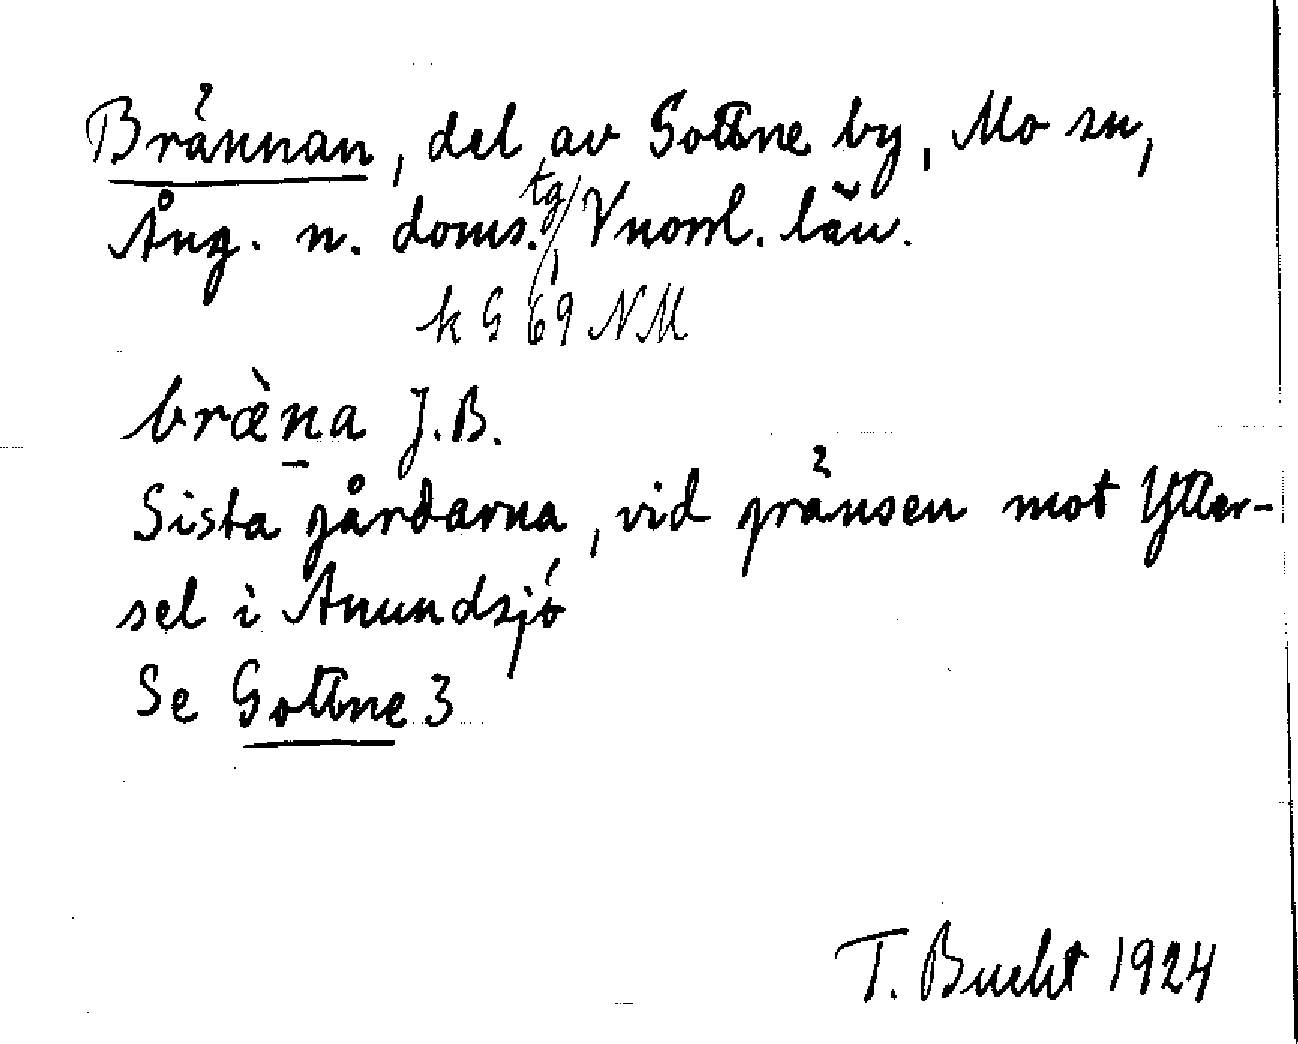 Brännan, del av Gottne by, Mo sn,
Ång. n. doms.tg/ Vnorrl. län.
k G 69 NM
bræ̀n̠a J.B.
Sista gårdarna, vid gränsen mot Ytter-
sel i Anundsjö
Se Gottne 3
T. Bucht 1924